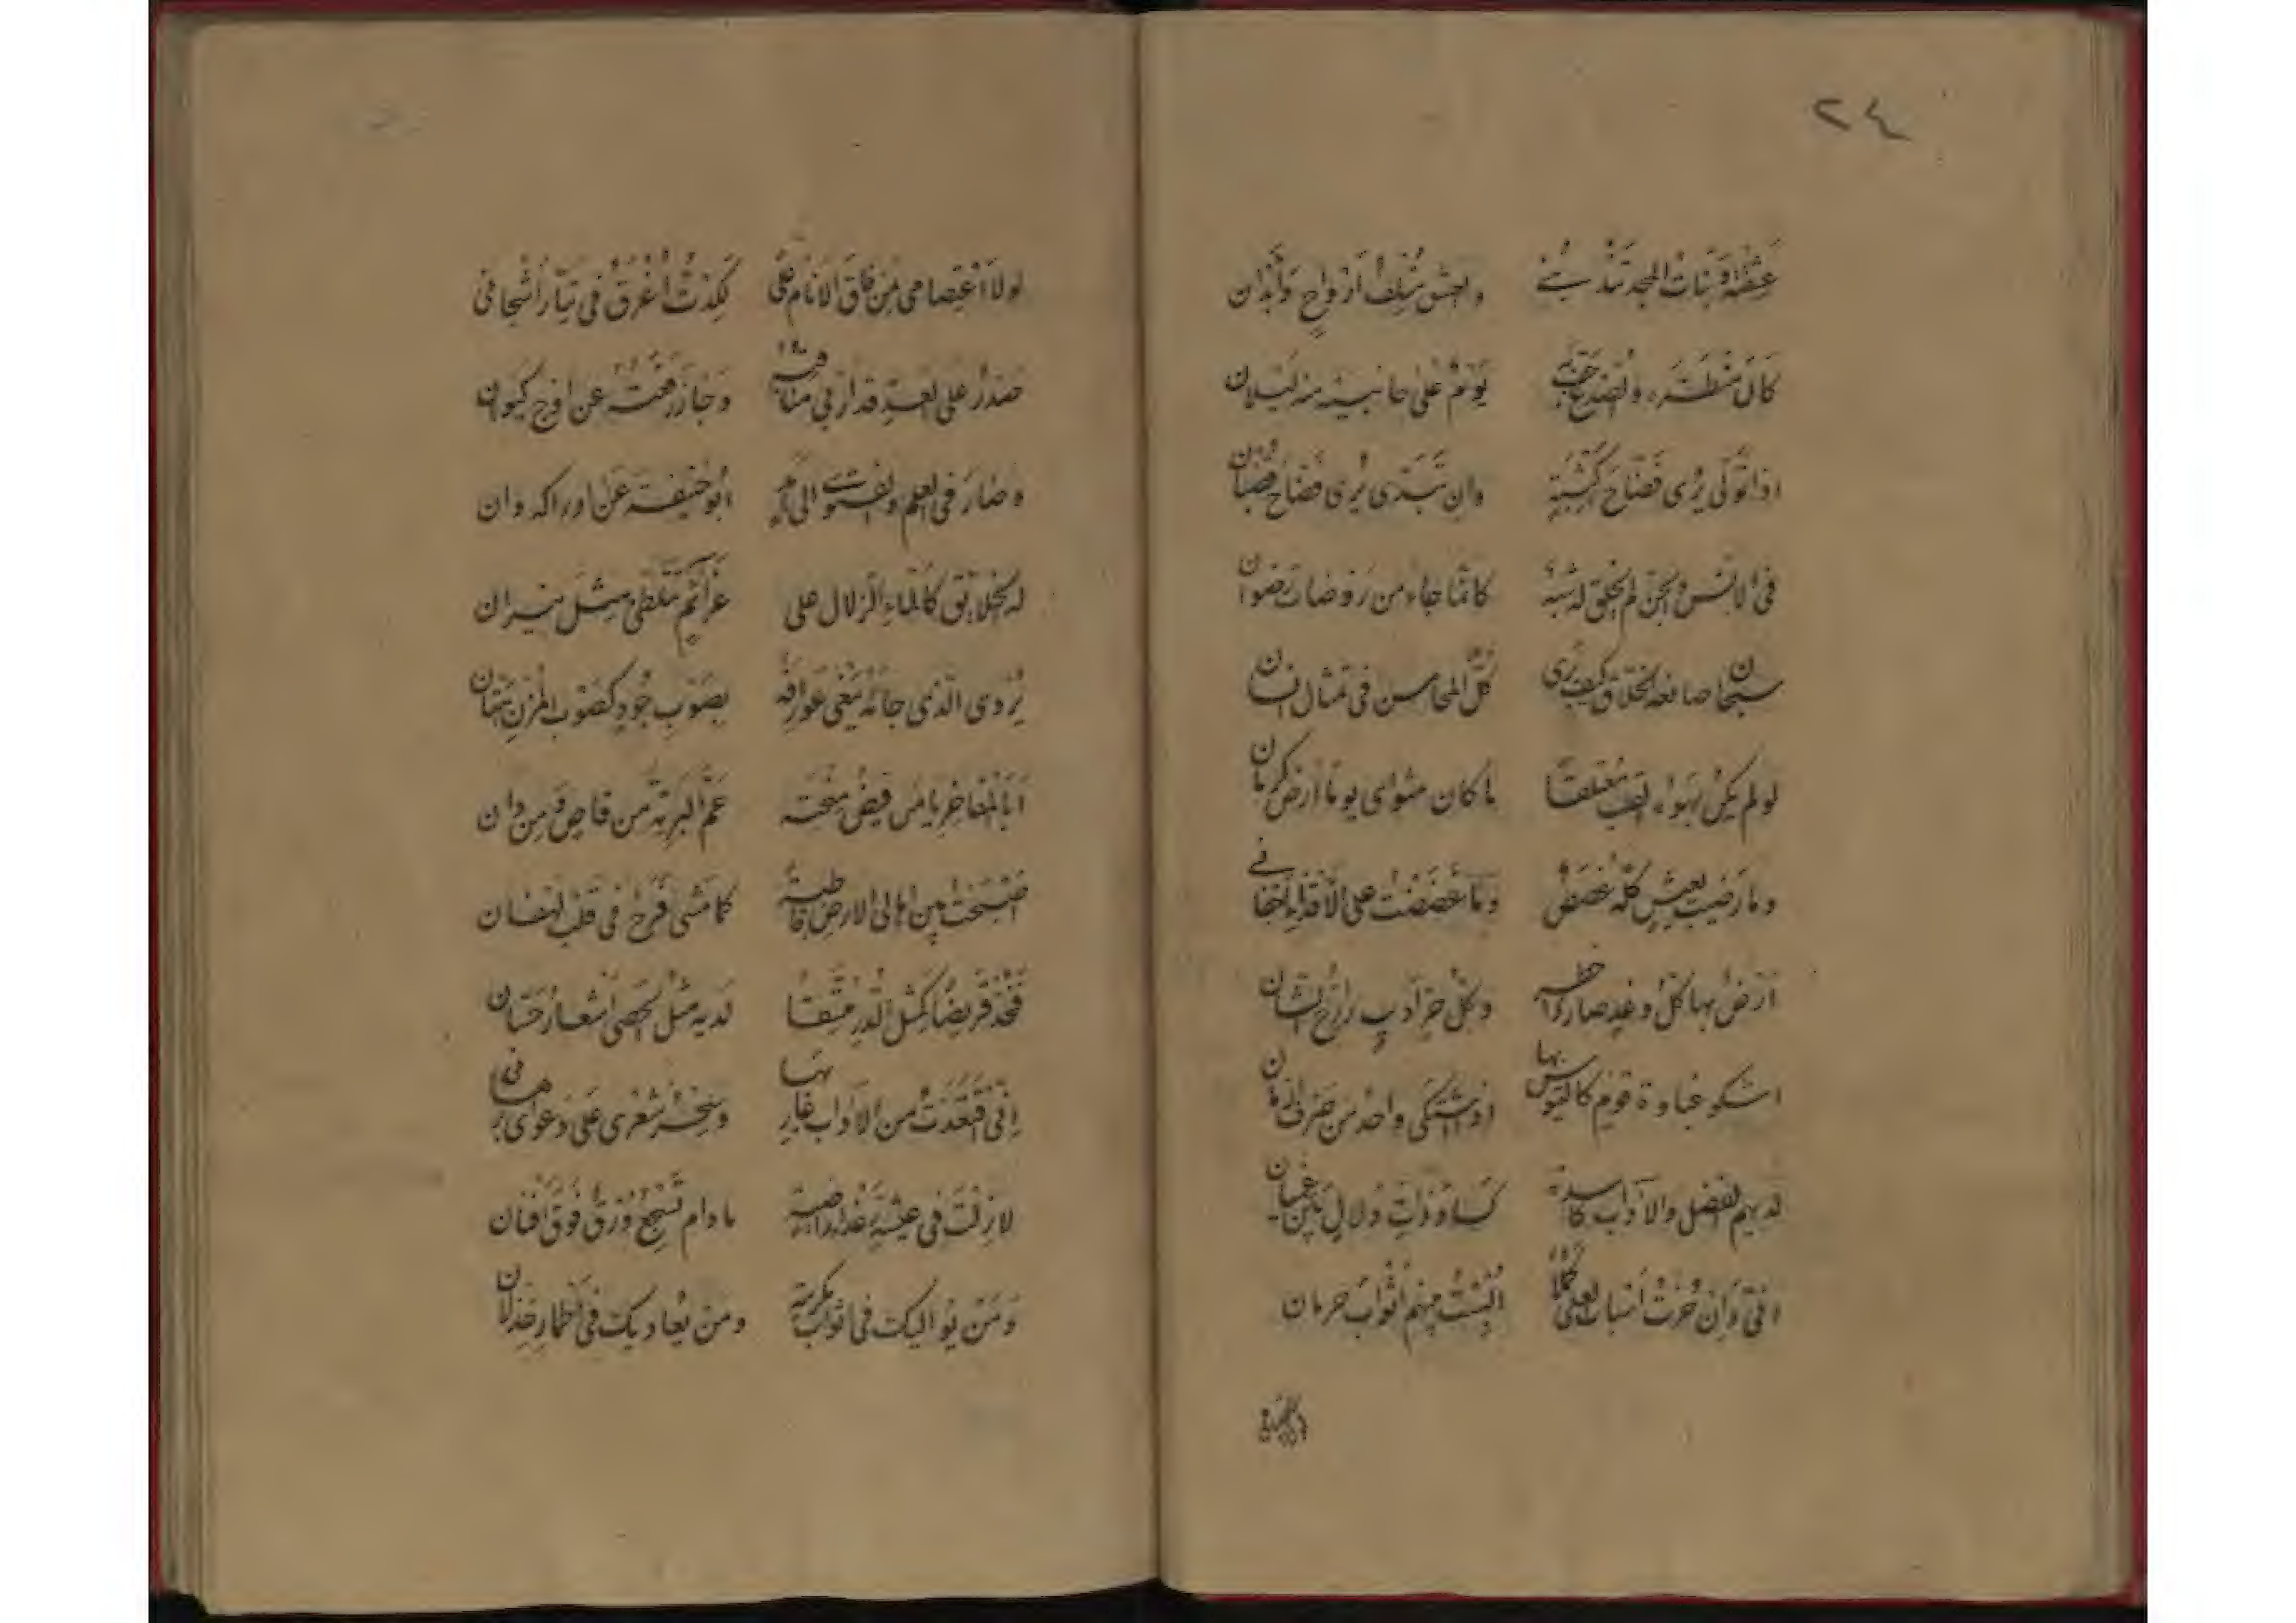 ٢٤
عشقته وبنات المجد تندبني والعشق متلف أرواح وأبدان
كأن منظره والصدغ حف به يوم على جانبيه منه ليلان
اذا تولى يُرى فضّاح كثبة وان تبدى يُرى فضاح قضبان
في الانس والجن لم يخلق له شبه كأنما جاء من روضات رضوان
سبحان صانعه الخلاق كيف يرى كل المحاسن في تمثال انسان
لو لم يكن بهواه القلب معتلقًا ما كان مثواى يوما ارض كرمان
وما رضيت بعيش كله غصص وما غضضت على الأقذاء اجفاني
ارض بها كل وغد صار ذا خطر وكل حر اديب رازح الشان
اشكو غباوة قوم كالتيوس بها اذ اشتكى واحد من صرف ازمان
لديهم الفضل والآداب كاسدة كساد ذات دلال بين خصيان
اني وان حزت أسباب العلى كملا ألبست منهم أثواب حرمان
لولا اعتصامي
لولا اعتصامي بمن فاق الانام على لكدت أغرق في تيار أشجاني
صدر على العسر قد أربى مناقبه وجاز رفعته عن اوج كيوان
وصار في العلم والفتوى الى أمد ابو حنيفة عن ادراكه وان
له خلائق كالماء الزلال على عزائم تتلظى مثل نيران
يُروي الذي جاءه يبغي عوارفه بصوب جود كصوب المزن هتان
أبا المفاخر يا من فيض منحته عم البرية من قاص ومن دان
اصبحت بين اهالي الارض قاطبة كما مشى فرح في قلب لهفان
فخذ قريضًا كمثل الدر متسقًا لديه مثل الحصى أشعار حسان
اني قعدت من الآداب غاربها وسحر شعرى على دعواى برهاني
لا زلت في عيشة رغداء راضية ما دام تسجع ورق فوق أفنان
ومن يواليك في اثواب مكرمة ومن يعاديك في أطمار خذلان